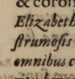 & coron
Elizabeth
ſtrumoſis
omnibus